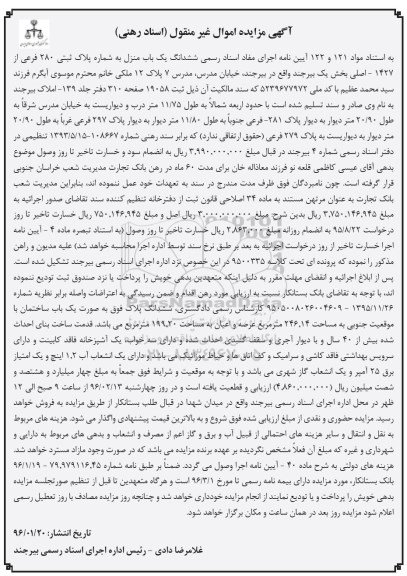 آگهی مزایده اموال غیر منقول (اسناد رهنی)
به استناد مواد ۱۲۱ و ۱۲۲ آیین نامه اجرای مفاد اسناد رسمی ششدانگ یک باب منزل به شماره پلاک ثبتی ۲۸۰ فرعی از
۱۴۲۷ - اصلی بخش یک بیرجند واقع در بیرجند، خیابان مدرس، مدرس ۷ پلاک ۱۲ ملکی خانم محترم موسوی آبگرم فرزند
سید محمد عظیم با کد ملی ۵۲۳۹۶۷۷۹۷۲ که سند مالکیت آن ذیل ثبت ۱۹۰۵۸ صفحه ۳۱۰ دفتر جلد ۱۳۹- املاک بیرجند
به نام وی صادر و سند تسلیم شده است با حدود اربعه شمالاً به طول ۱۱/۷۵ متر درب و دیواریست به خیابان مدرس شرقاً به
طول ۲۰/۹۰ متر دیوار به دیوار پلاک ۲۸۱- فرعی جنوباً به طول ۱۱/۸۰ متر دیوار به دیوار پلاک ۲۹۷ فرعی غرباً به طول ۲۰/۹۰
متر دیوار به دیواریست به پلاک ۲۷۹ فرعی (حقوق ارتفاقی ندارد) که برابر سند رهنی شماره ۱۰۸۶۶۷-۱۳۹۳/۵/۱۵ تنظیمی در
دفتر اسناد رسمی شماره ۴ بیرجند در قبال مبلغ ۳,۹۹۰,۰۰۰,۰۰۰ ریال به انضمام سود و خسارت تاخیر تا روز وصول موضوع
بدهی آقای عیسی کاظمی قلعه نو فرزند معاذاله خان برای مدت ۶۰ ماه در رهن بانک تجارت مدیریت شعب خراسان جنوبی
قرار گرفته است. چون نامبردگان فوق ظرف مدت مندرج در سند به تعهدات خود عمل ننموده اند، بنابراین مدیریت شعب
بانک تجارت به عنوان مرتهن مستند به ماده ۳۴ اصلاحی قانون ثبت از دفترخانه تنظیم کننده سند تقاضای صدور اجرائیه به
مبلغ ۳,۷۵۰,۱۴۶,۹۴۵ ریال بدین شرح: مبلغ ۳,۰۰۰,۰۰۰,۰۰۰ ریال اصل و مبلغ ۷۵۰,۱۴۶,۹۴۵ ریال خسارت تاخیر تا روز
درخواست ۹۵/۸/۲۲ به انضمام روزانه مبلغ ۲,۸۶۳,۰۰۰ ریال خسارت تاخیر تا روز وصول (به استناد تبصره ماده ۴ - آیین نامه
اجرا خسارت تاخیر از روز درخواست اجرائیه به بعد بر طبق نرخ سند توسط اداره اجرا محاسبه خواهد شد) علیه مدیون و راهن
مذکور را نموده که پرونده ای تحت کلاسه ۹۵۰۰۳۳۵ در این خصوص نزد اداره اجرای اسناد رسمی بیرجند تشکیل شده است.
پس از ابلاغ اجرائیه و انقضای مهلت مقرر به دلیل اینکه متعهدین بدهی خویش را پرداخت یا نزد صندوق ثبت تودیع ننموده
اند، با توجه به تقاضای بانک بستانکار نسبت به ارزیابی مورد رهن اقدام و ضمن رسیدگی به اعتراضات واصله برابر نظریه شماره
۹۵۰۵۰۰۸۰۲۶۰۰۴۶۰۹ - ۱۳۹۵/۱۱/۲۶ کارشناس رسمی دادگستری، ششدانگ پلاک فوق به صورت یک باب ساختمان با
موقعیت جنوبی به مساحت ۲۴۶,۱۴ مترمربع عرصه و اعیان به مساحت ۱۹۹,۲۰ مترمربع می باشد. قدمت ساخت بنای احداث
شده بیش از ۴۰ سال و با دیوار آجری و سقف گنبدی احداث شده و دارای سه خوابه، یک آشپزخانه فاقد کابینت و دارای
سرویس بهداشتی فاقد کاشی و سرامیک و کف اتاق ها و حیاط موزائیک می باشد و دارای یک انشعاب آب ۱,۲ اینچ و یک امتیاز
برق ۲۵ آمپر و یک انشعاب گاز شهری می باشد و با توجه به موقعیت و شرایط فوق جمعاً به مبلغ چهار میلیارد و هشتصد و
شصت میلیون ریال (۴,۸۶۰,۰۰۰,۰۰۰) ارزیابی و قطعیت یافته است و در روز چهارشنبه ۹۶/۰۲/۱۳ از ساعت ۹ صبح الی ۱۲
ظهر در محل اداره اجرای اسناد رسمی بیرجند واقع در میدان شهدا در قبال طلب بستانکار از طریق مزایده به فروش خواهد
رسید. مزایده حضوری و نقدی از مبلغ ارزیابی شده فوق شروع و به بالاترین قیمت پیشنهادی واگذار می شود. هزینه های مربوط
به نقل و انتقال و سایر هزینه های احتمالی از قبیل آب و برق و گاز اعم از مصرف و انشعاب و بدهی های مربوط به دارایی و
شهرداری و غیره که مبلغ آن فعلاً مشخص نگردیده بر عهده برنده مزایده می باشد که در صورت وجود مازاد مسترد خواهد شد.
هزینه های دولتی به شرح ماده ۴۰ - آیین نامه اجرا وصول می گردد. ضمناً بر طبق نامه شماره ۷۹,۹۷۹۱۱۶,۴۵ - ۹۶/۱/۱۹
بانک بستانکار، مورد مزایده دارای بیمه نامه رسمی تا مورخ ۹۶/۳/۱ است و هرگاه متعهدین تا قبل از تنظیم صورتجلسه مزایده
بدهی خویش را پرداخت و یا تودیع نمایند از انجام مزایده خودداری خواهد شد و چنانچه روز مزایده مصادف با روز تعطیل رسمی
اعلام شود مزایده روز بعد در همان ساعت و مکان برگزار خواهد شد.
تاریخ انتشار: ۹۶/۰۱/۲۰
غلامرضا دادی - رئیس اداره اجرای اسناد رسمی بیرجند